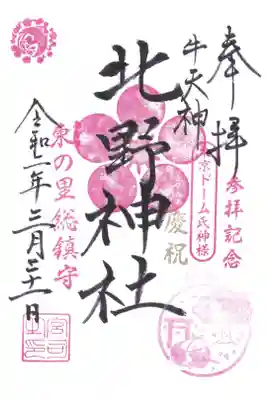 奉拝
参拝記念
牛天神
東京ドーム氏神様
慶祝
北野神社
東の里総鎮守
令和二年三月
宮司之印